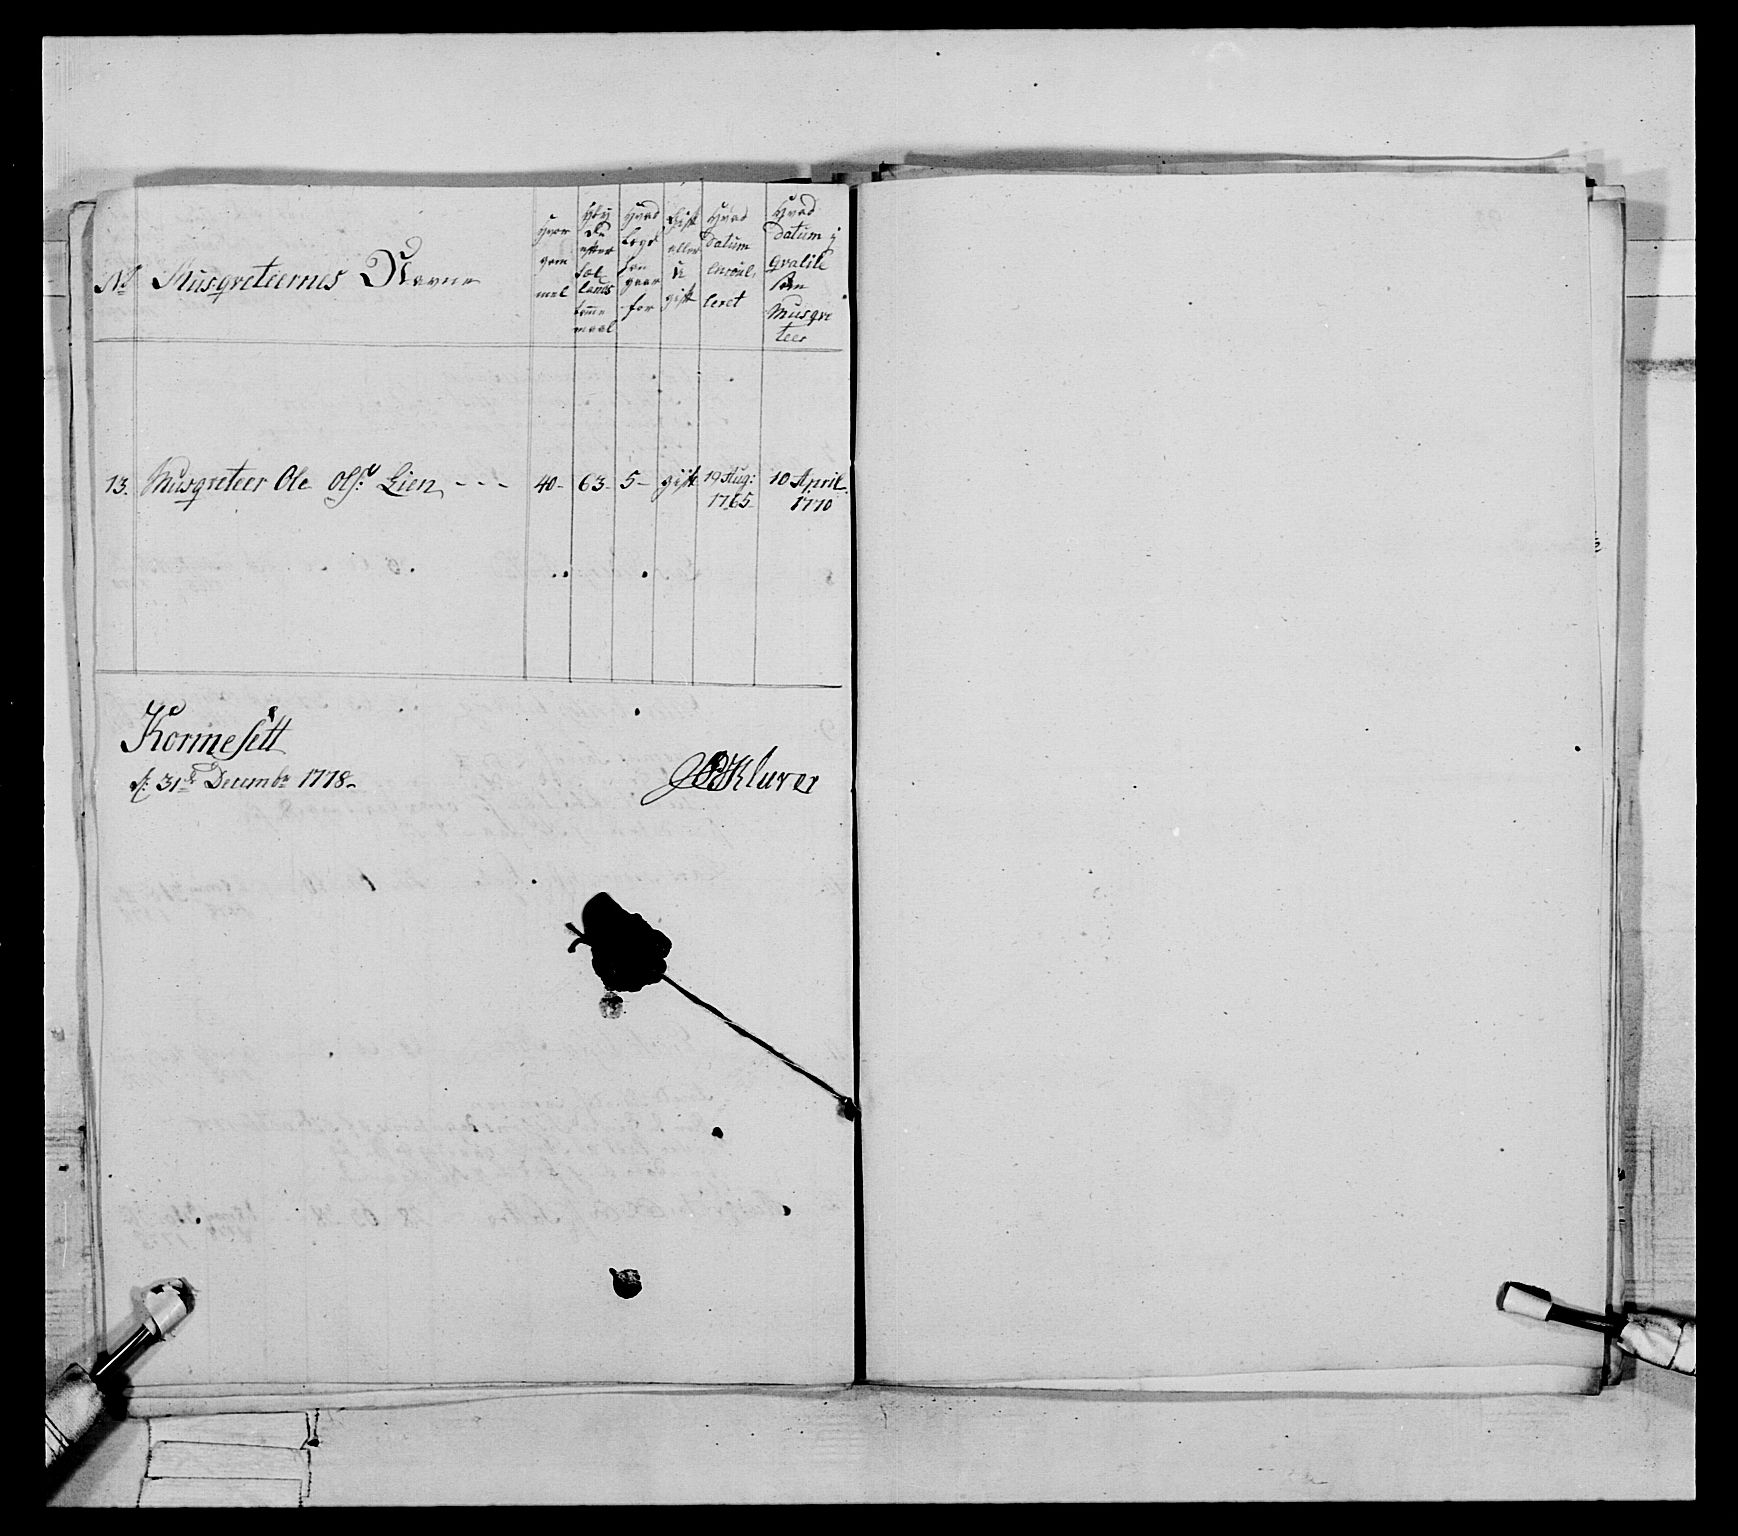 No Musqveteernes Navne
Hvor gam mel
Høy du efter Sæl lands tomme maal
Hvad Legd han gaar for
Gift eller U gift
Hvad datum enroul leret
Hvad datum i qvalite som Musqve teer
13. Musqveteer Ole Ols: Lien - - - 40- 63- 5- gift 19 Aug: 1765- 10 April 1770
Kormesett
d: 31te Decembr 1778-
Kluver